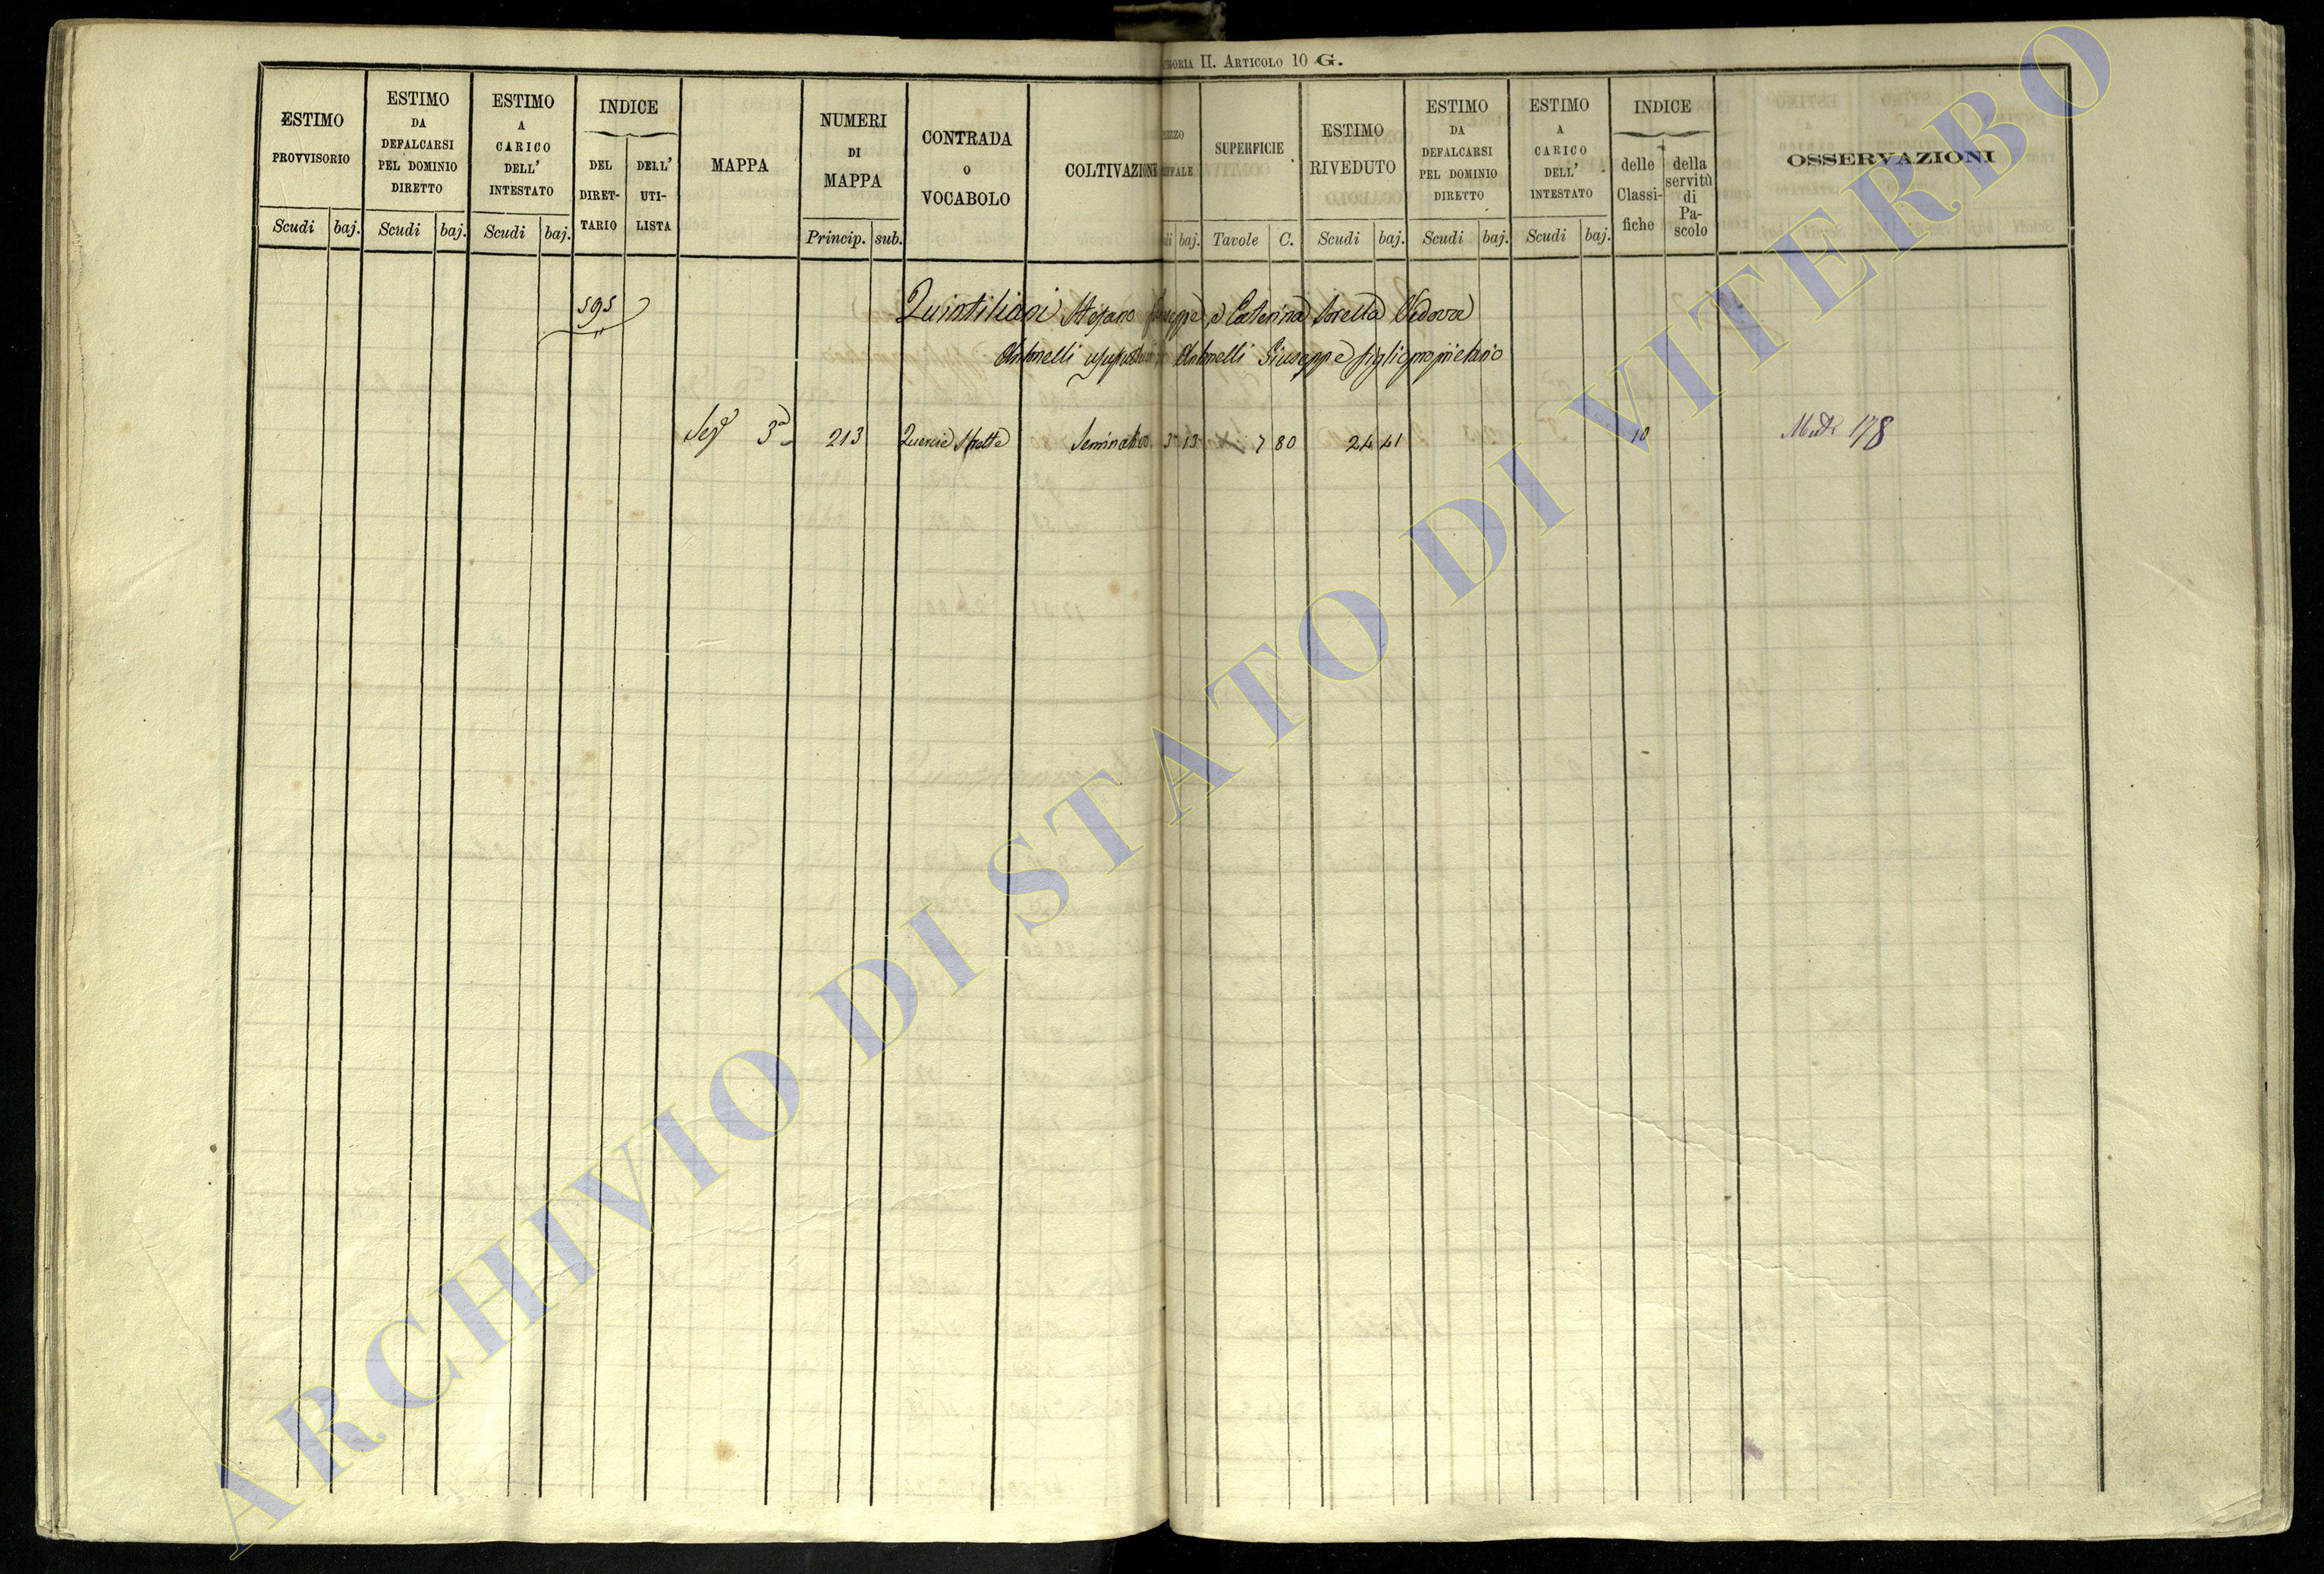 II. ARTICOLO 10 G.
ESTIMO PROVVISORIO
ESTIMO DA DEFALCARSI PEL DOMINIO DIRETTO
ESTIMO A CARICO DELL' INTESTATO
INDICE
DEL DIRET-
TARIO
DELL' UTI-
LISTA
MAPPA
NUMERI DI MAPPA
CONTRADA o VOCABOLO
COLTIVAZIONE
SUPERFICIE
ESTIMO RIVEDUTO
ESTIMO DA DEFALCARSI PEL DOMINIO DIRETTO
ESTIMO A CARICO DELL' INTESTATO
INDICE
delle Classi-
fiche
della servitù di Pa-
scolo
OSSERVAZIONI
Scudi baj. Scudi baj. Scudi baj. Princip. sub. baj. Tavole C. Scudi baj. Scudi baj. Scudi baj.
595 Quintiliani Stefano Giuseppe, e Caterina Sorella Vedova
Antonelli Antonelli Giuseppe figlio proprietario
3ª 213 Quercie Strette Seminativo 3 13 7 80 24 41 10 178
ARCHIVIO DI STATO DI VITERBO